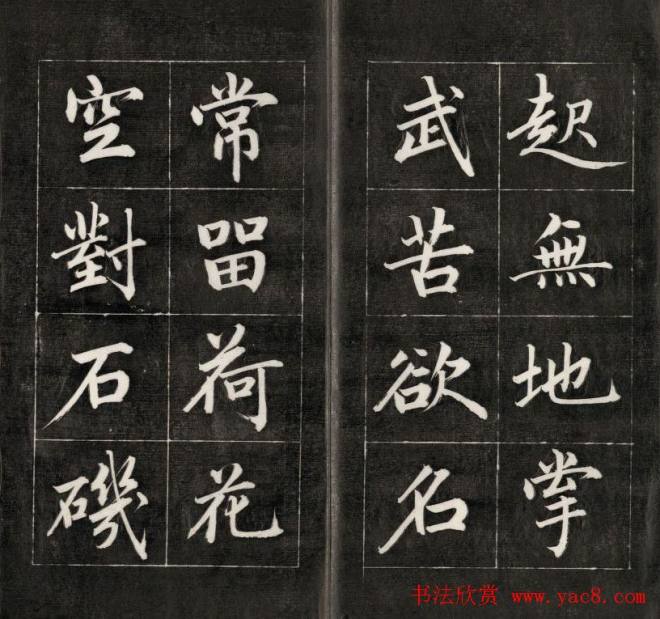 起無地掌
武苦欲名
常畱荷花
空對石磯
书法欣赏 www.yac8.com